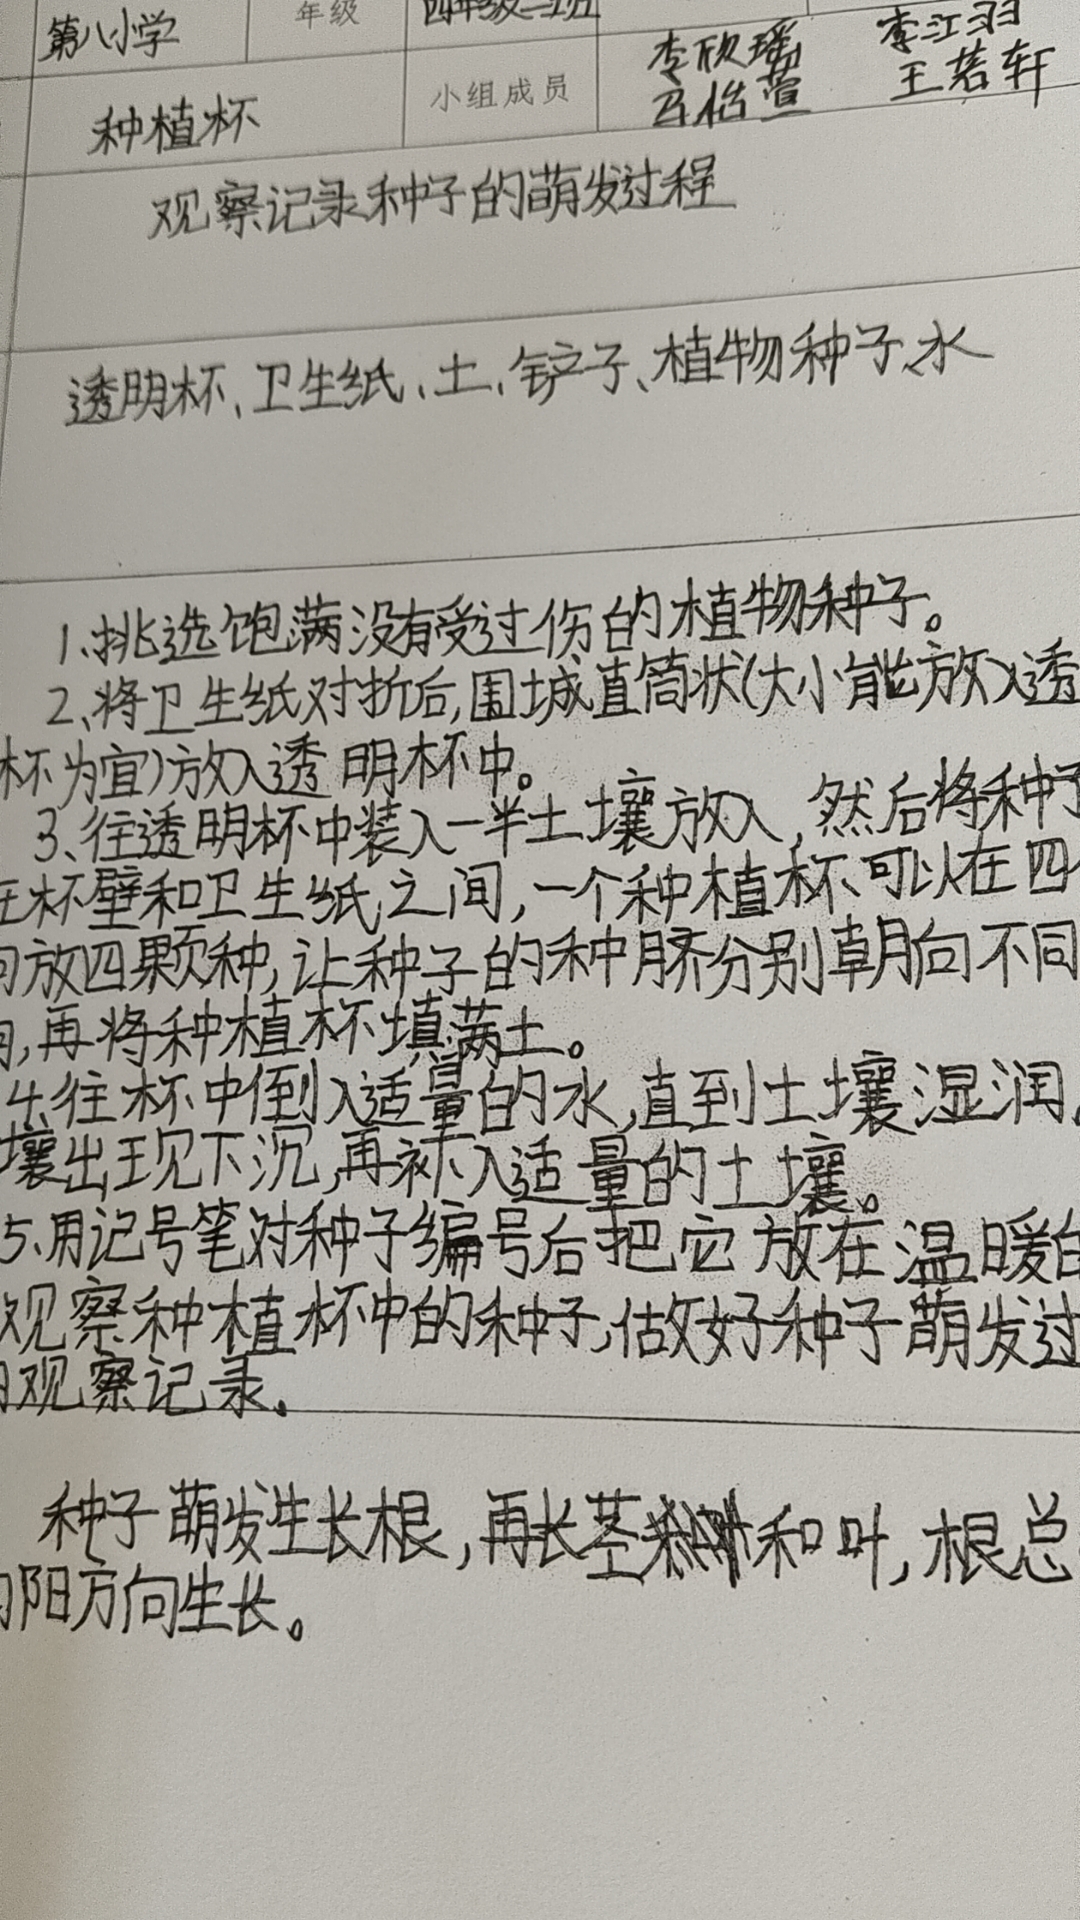 第八小学 年级 四年级二班
李欣瑶 李江羽
种植杯 小组成员 马怡萱 王若轩
观察记录种子的萌发过程
透明杯、卫生纸、土、铲子、植物种子、水
1、挑选饱满没有受过伤的植物种子。
2、将卫生纸对折后,围城直筒状(大小能放入透
杯为宜)放入透明杯中。
3、往透明杯中装入一半土壤放入,然后将种子
在杯壁和卫生纸之间,一个种植杯可以在四个
向放四颗种,让种子的种脐分别朝向不同
再将种植杯填满土。
4、往杯中倒入适量的水,直到土壤湿润,
壤出现下沉,再补入适量的土壤。
5、用记号笔对种子编号后把它放在温暖的
观察种植杯中的种子,做好种子萌发过
的观察记录。
种子萌发生长根,再长茎和叶,根总
向阳方向生长。